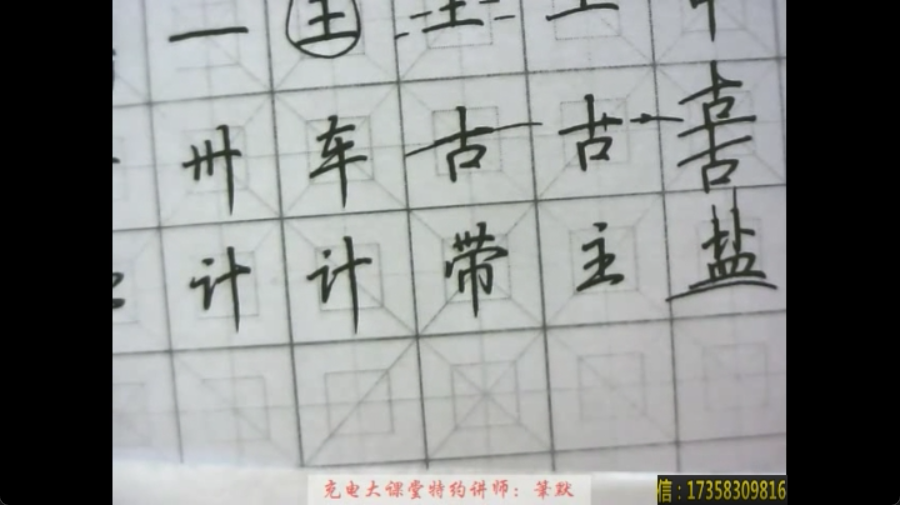 一 主 王 工 中
卅 车 古 古 古古
计 计 带 主 盐
充电大课堂特约讲师：笔默
信：17358309816